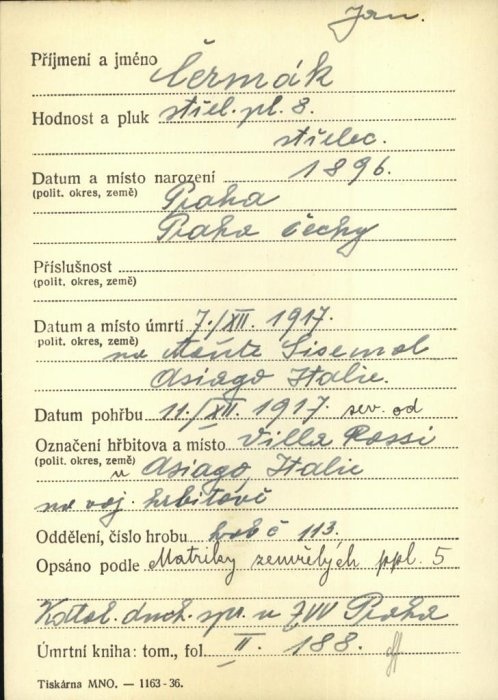 Jan.
Příjmení a jméno Čermák
Hodnost a pluk střel. pl. 8.
střelec.
Datum a místo narození 1896.
(polit. okres, země) Praha
Praha Čechy
Příslušnost
(polit. okres, země)
Datum a místo úmrtí 7./XII. 1917.
polit. okres, země) na Monte Sisemol
Asiago Italie.
Datum pohřbu 11./XII. 1917. sev. od
Označení hřbitova a místo Villa Rossi
(polit. okres, země) u Asiago, Italie
na voj. hřbitově
Oddělení, číslo hrobu hrob č 113.
Opsáno podle Matriky zemřelých ppl. 5
Katol. duch. spr. u ZVV Praha
Úmrtní kniha: tom., fol. II. 188.
Tiskárna MNO. — 1163-36.